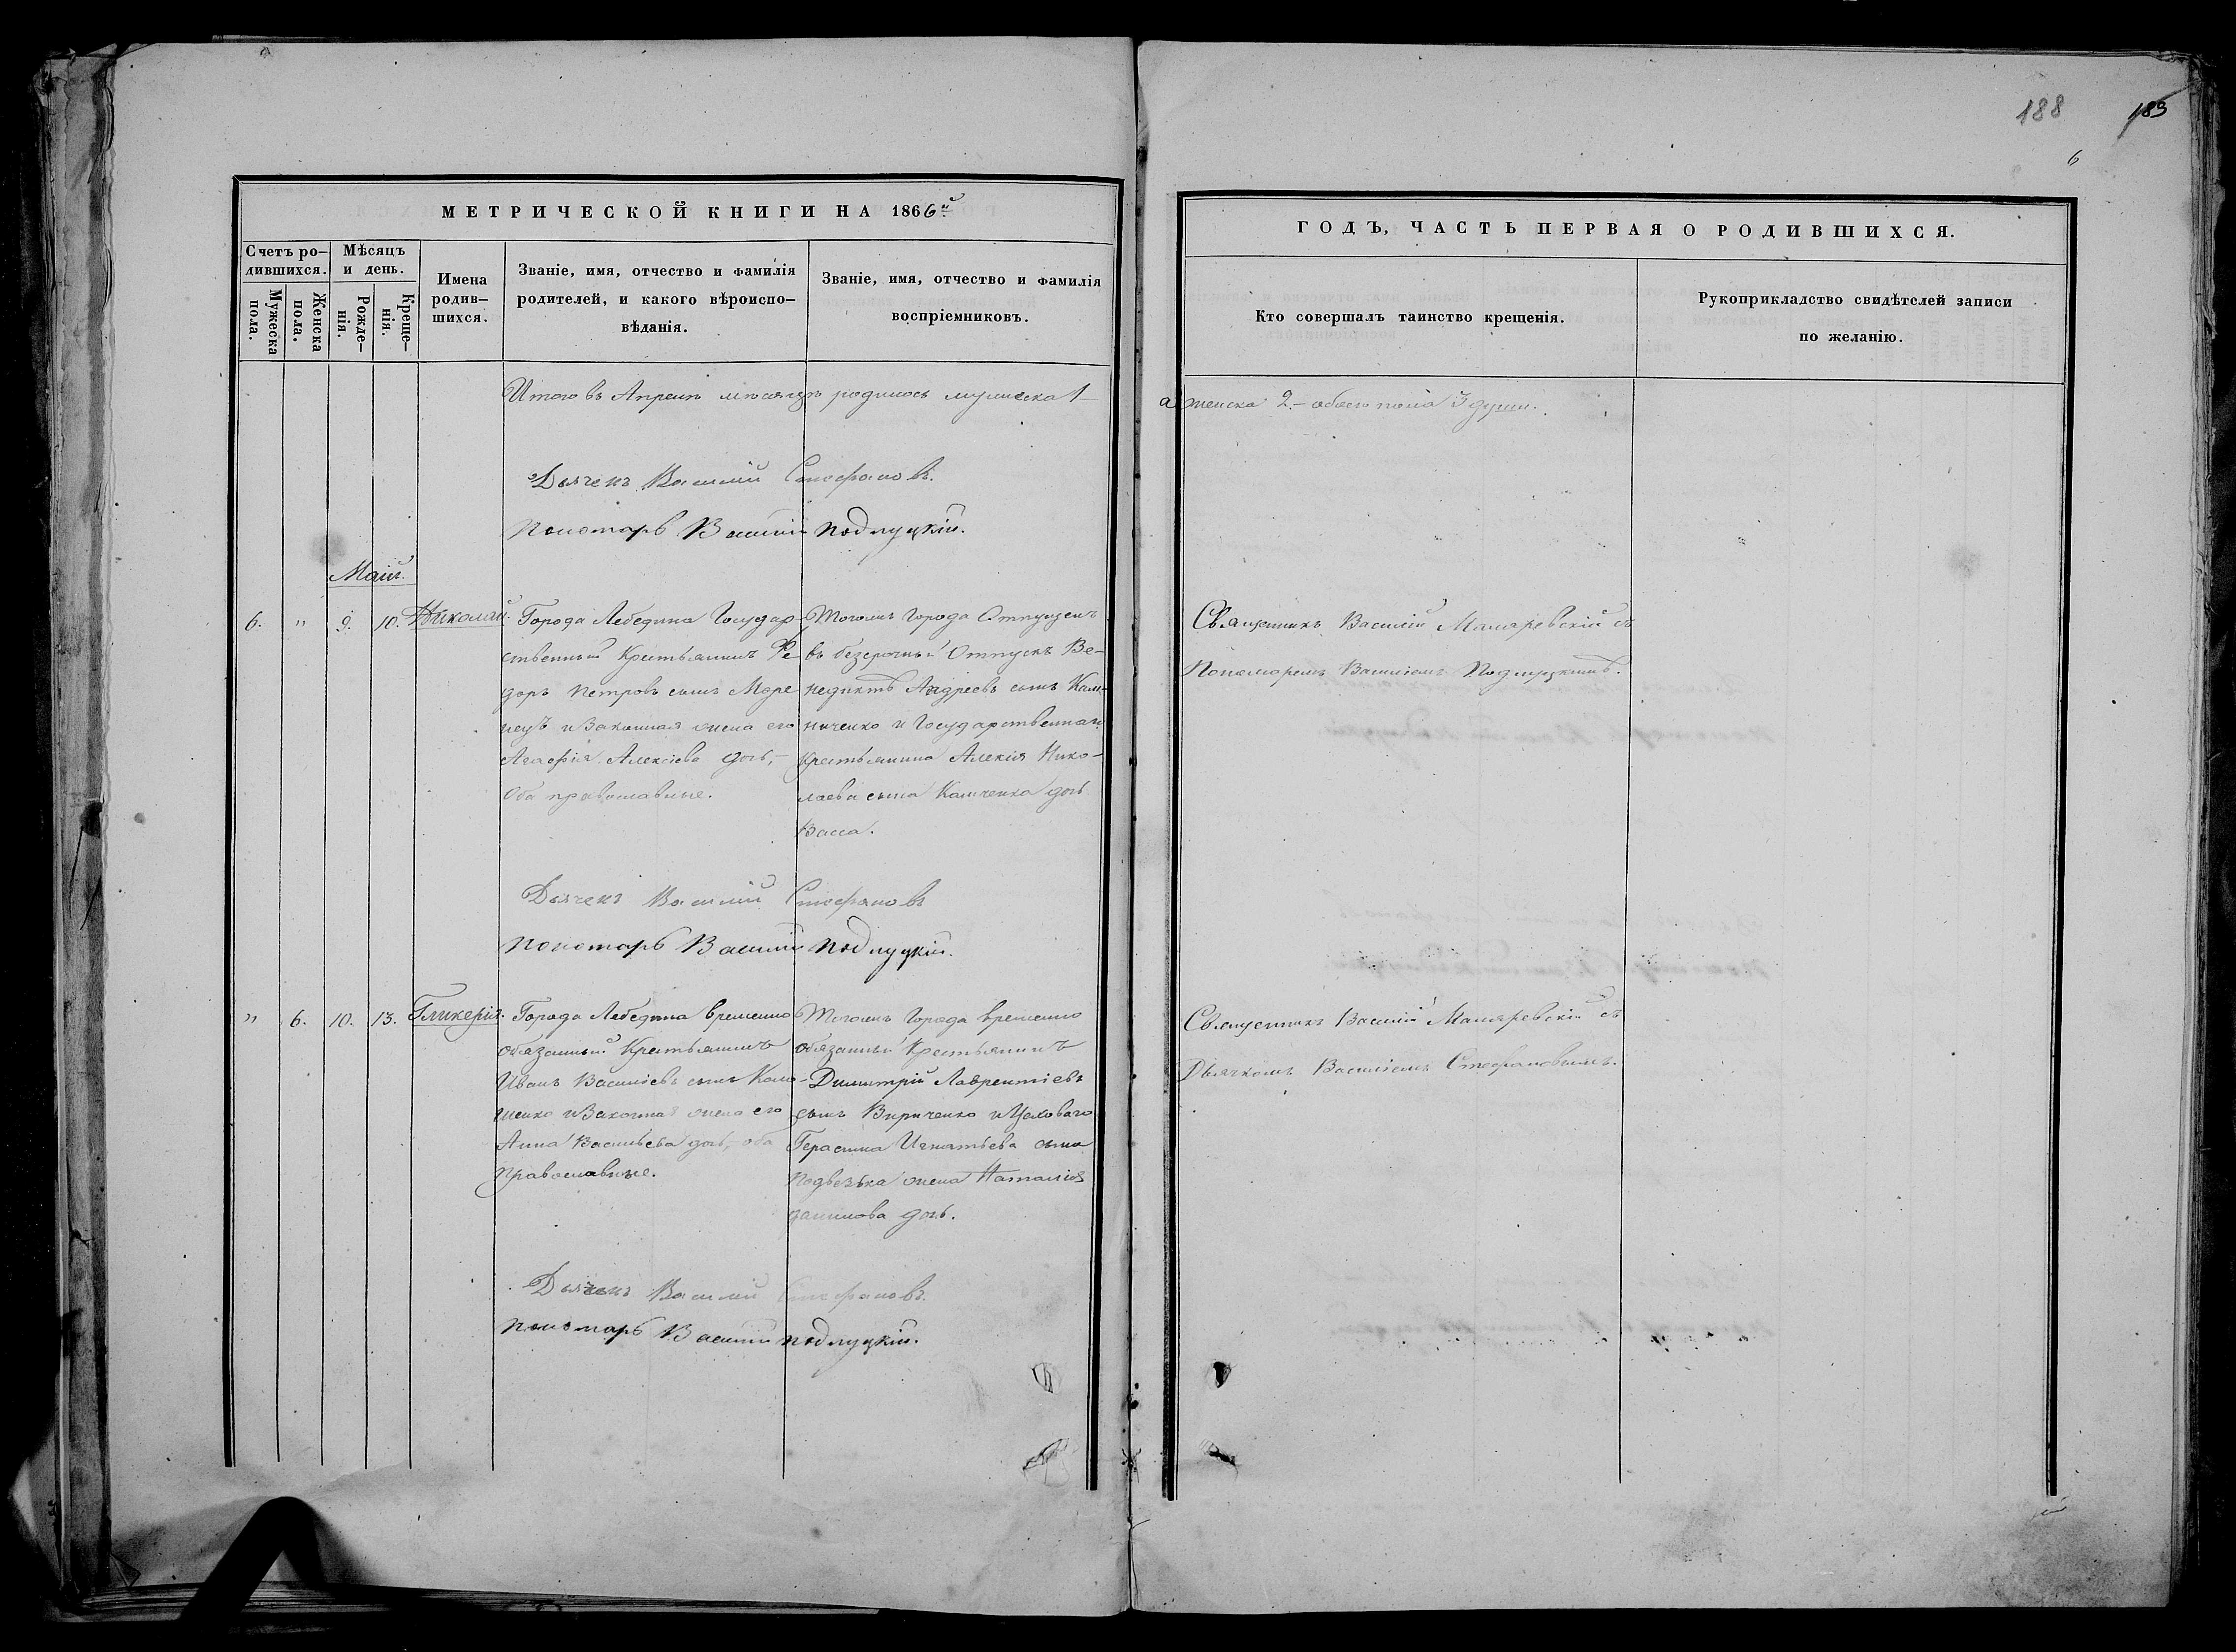 188 183
6
МЕТРИЧЕСКОЙ КНИГИ НА 1866й
ГОДЪ, ЧАСТЬ ПЕРВАЯ О РОДИВШИХСЯ.
Счетъ ро-
дившихся.
Мужеска
пола.
Женска
пола.
Мѣсяцъ
и день.
Рожде-
нія.
Креще-
нія.
Имена
родив-
шихся.
Званіе, имя, отчество и фамилія
родителей, и какого вѣроиспо-
вѣданія.
Званіе, имя, отчество и фамилія
воспріемниковъ.
Кто совершалъ таинство крещенія.
Рукоприкладство свидѣтелей записи
по желанію.
Итого въ Апрелѣ мѣсяцѣ родилось мужеска 1
а женска 2 - обоего пола 3 души.
Дьячекъ Василій Стефановъ.
Пономарь Василій Подлуцкій.
Маій.
6. " 9. 10. Николай.
Города Лебедина Государ-
ственный Крестьянинъ Ѳе
доръ Петровъ сынъ
и Законная жена его
Агафія Алексіева дочь,-
Оба православные.
Тогожъ Города Отпущенъ
въ безсрочный Отпускъ Ве-
недиктъ Андреевъ сынъ Кали-
ниченко и Государственнаго
Крестьянина Алексія Нико-
лаева сына дочь
Васса.
Священникъ Василій Маляревскій съ
Пономаремъ Василіемъ Подлуцкимъ.
Дьячекъ Василій Стефановъ
Пономарь Василій Подлуцкій.
" 6. 10. 13. Гликерія.
Города Лебедина временно
Обязанный Крестьянинъ
Иванъ Василіевъ сынъ
и Законная жена его
Анна Васильева дочь, оба
Православные.
Тогожъ Города временно
обязанный Крестьянинъ
Димитрій Лаврентіевъ
сынъ Вириченко и Цеховаго
Герасима Игнатьева сына
жена Наталія
дочь.
Священникъ Василій Маляревскій съ
Дьячкомъ Василіемъ Стефановымъ.
Дьячекъ Василій Стефановъ.
Пономарь Василій Подлуцкій.